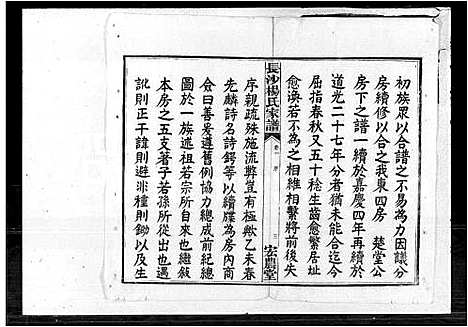 初族眾以合譜之不易為力因議分
房續修以合之我東四房 楚堂公
房下之譜一續於嘉慶四年再續於
道光二十七年分者猶未能合迄今
屈指春秋又五十稔生齒愈繁居址
愈渙若不為之相維相繫將前後失
長沙楊氏家譜
卷一 序
三
宏農堂
序親疏殊施流弊豈有極歟乙未春
先麟詩名詩鍔等以續牒為房內商
僉曰善爰遵舊例協力總成前紀總
圖於一族述祖若宗所自來也繼敘
本房之五支著子若孫所從出也
訛則正干諱則避非種則鋤以及生